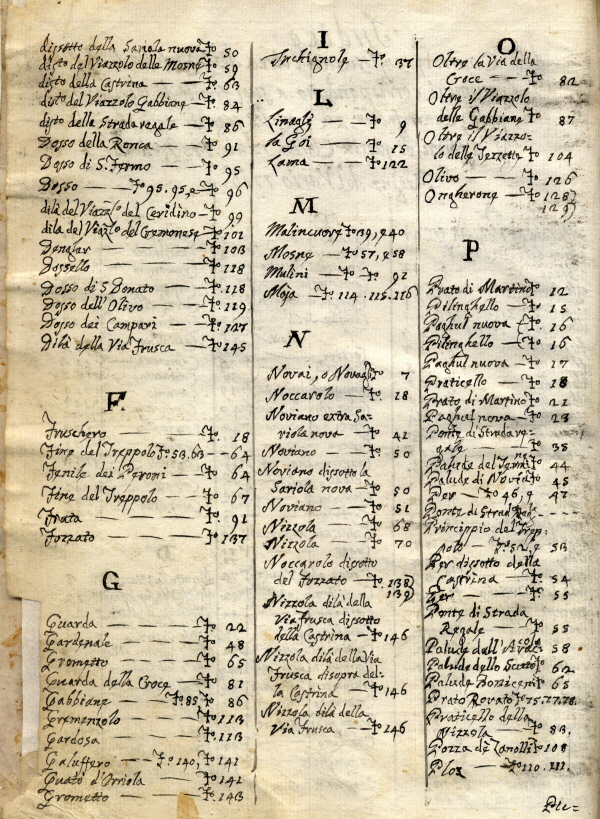 disotto della Sariola nuova Fo 50
disto del Viazzolo delle Mosne Fo 59
disto della Castrina — Fo 63
disto del Viazzolo Gabbiane — Fo 84
disto della Strada regale — Fo 86
Dosso della Ronca — Fo 91
Dosso di S. Fermo — Fo 95
Dosso — Fo 95. 95, e Fo 96
dilà del Viazz.lo del Ceridino — Fo 99
dila del Viaz.lo del Cremonese Fo 101
Dengiar — Fo 103
Dossello — Fo 118
Dosso di S Donato — Fo 118
Dosso dell'Olivo — Fo 119
Dosso dei Campari — Fo 127
Dilà della Via Frusca — Fo 145
F.
Fruschero — Fo. 18
Fine del Treppolo Fo 53. 63 — 64
Fenile dei Peroni — Fo 64
Fine del Treppolo — Fo 67
Frata — Fo. 91
Fozzato — Fo 137
G
Guarda — Fo 22
Gardenale — Fo 48
Grometto — Fo 65
Guarda della Croce — Fo 81
Gabbiane — Fo 85, Fo 86
Gremenzolo — Fo 113
Gardosa — Fo 113
Galuffero — Fo 140, Fo 141
Guato d'Orriola — Fo 141
Grometto — Fo. 143
I
Irchignole — Fo. 37
L
Linagli — Fo 9
la Goi — Fo 15
Lama — Fo 122
M
Malincuore Fo 39, e 40
Mosne — Fo 57, e 58
Mulini — Fo Fo 91
Moja — Fo 114. 115. 116
N
Novai, o Novagli Fo 7
Noccarolo — Fo. 18
Noviano extra Sa-
riola nova — Fo 41
Noviano — Fo 50
Noviano dissotto la
Sariola nova — Fo 50
Noviano — Fo 51
Nizzola — Fo 68
Nizzola — Fo 70
Noccarolo disotto
del Fozzato — Fo. 138
139
Nizzola dilà della
Via frusca disotto
della Castrina — Fo 146
Nizzola dilà della Via
Frusca disopra del-
la Castrina — Fo 146
Nizzola dilà della
Via frusca — Fo 146
O
Oltre la Via della
Croce — Fo 82
Oltre il Viazzolo
delle Gabbiane Fo 87
Oltre il Viazzo-
lo delle Fo 104
Olivo — Fo 126
Ongherone — Fo 128
129
P
Prato di Martino Fo 12
Pilinghello — Fo 15
Paghul nuova — Fo. 16
Pilinghello — Fo 16
Paghul nuova — Fo 17
Praticello — Fo 18
Prato di Martino Fo 21
Paghul nova — Fo 23
Ponte di Strada re-
gale — Fo 35
Palude del Fo 44
Palude di Novia.no Fo 45
Per — Fo 46, e 47
Ponte di Strad - - - -
Princippio del Trep-
polo Fo. 52, e 53
Per dissotto della
Castrina — Fo 54
Per — Fo 55
Ponte di Strada
Regale — Fo 55
Palude dell' Fo 58
Palude dello Fo 62
Palude Fo 65
Prato Fo 75. 77. 78.
Praticello della
Nizzola — Fo 83.
Pozza de Zanolli Fo 108
Ploz — Fo 110. 111.
Pic=